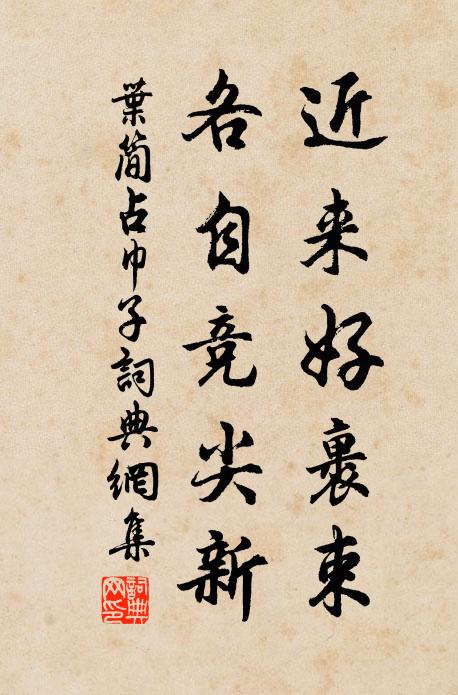 近来好裹束
各自竞尖新
葉简占巾子詞典網集
詞典網印